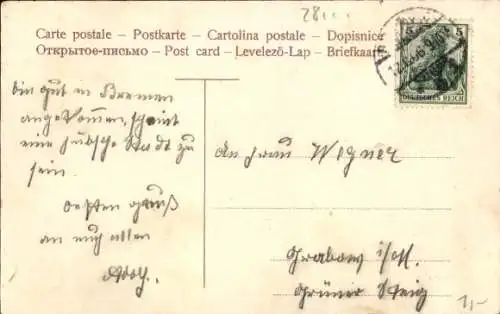 28
Carte postale – Postkarte – Cartolina postale – Dopisnice
Открытое-письмо – Post card – Levelező-Lap – Briefkaart
5 5
DEUTSCHES REICH
bin gut in Bremen
angekommen, scheint
eine hübsche Stadt zu
sein.
besten Gruß
an euch allen
Adolf.
An Frau Wegner
Grabow i/M.
Grüner Steig
1,-